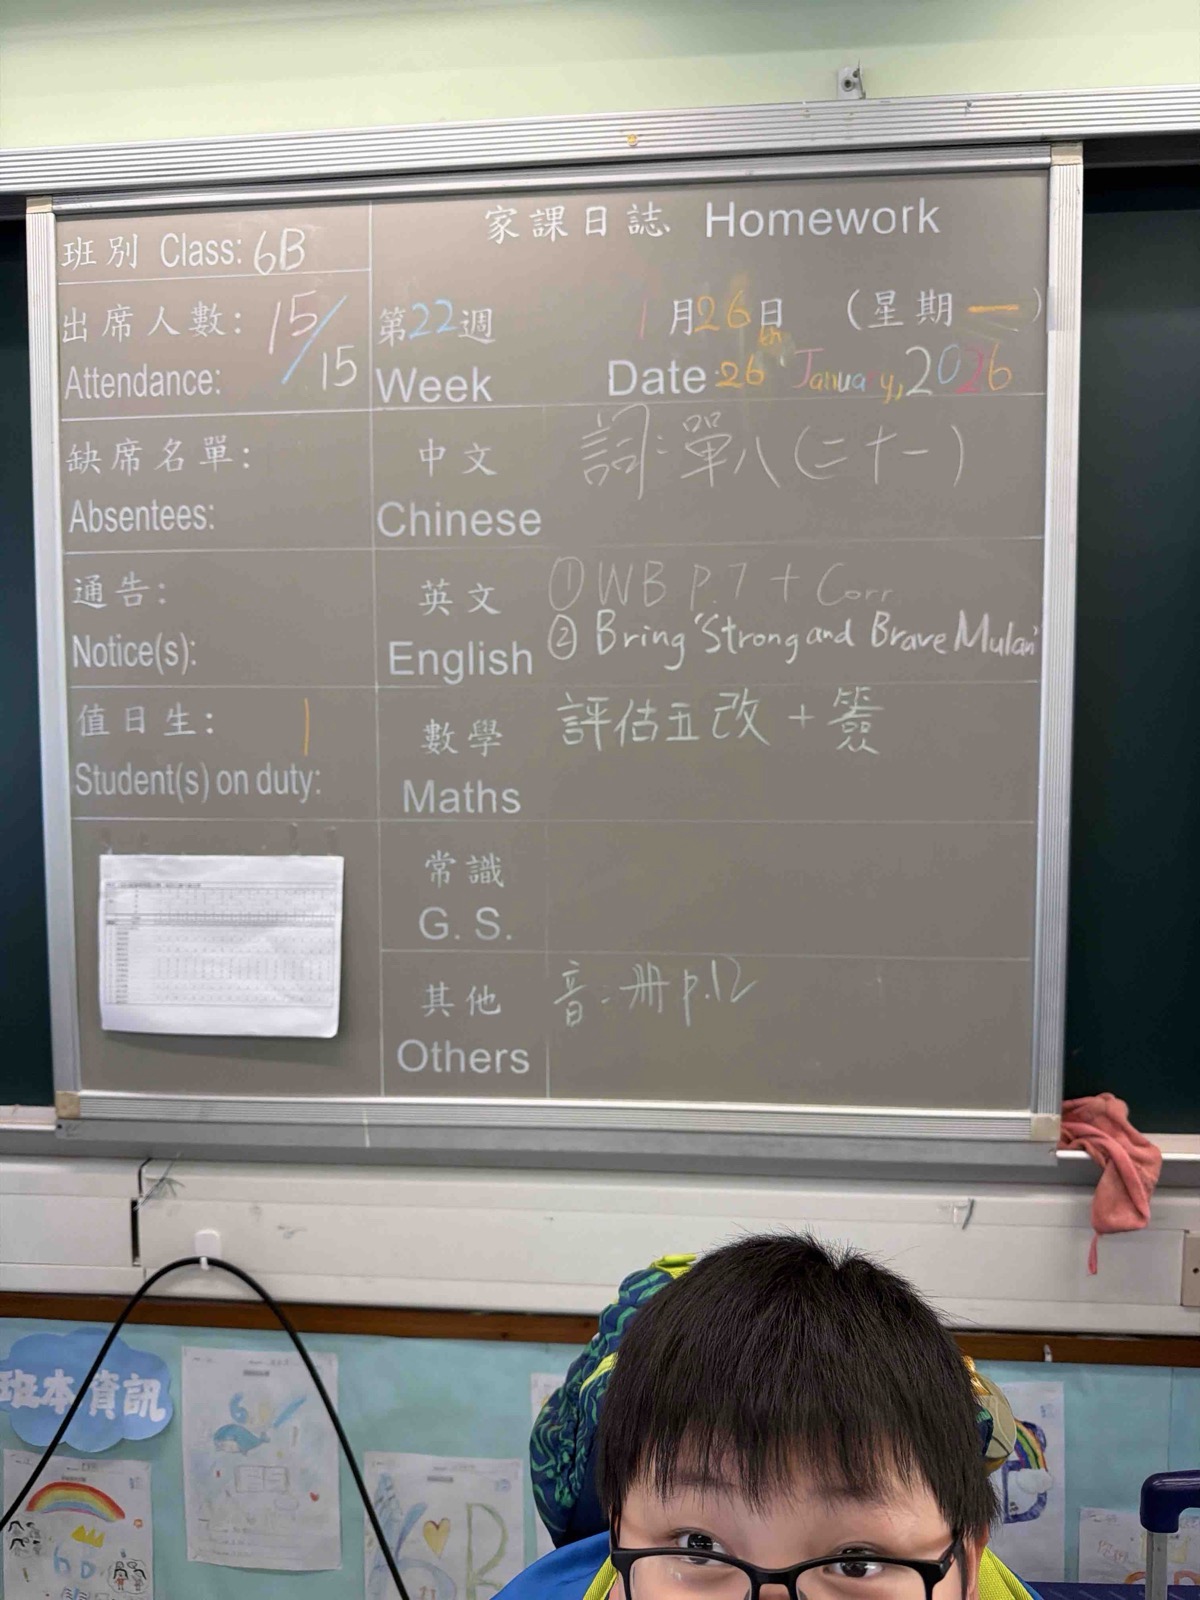 家課日誌 Homework
班別 Class: 6B
出席人數: 15/15
Attendance:
第22週
Week
1月26日 (星期一)
Date: 26th January, 2026
缺席名單:
Absentees:
中文
Chinese
詞:單八(二十一)
通告:
Notice(s):
英文
English
①WB P.7 + Corr
② Bring "Strong and Brave Mulan"
值日生: 1
Student(s) on duty:
數學
Maths
評估五改 + 簽
常識
G. S.
其他
Others
音:冊 p.12
班本資訊
6B